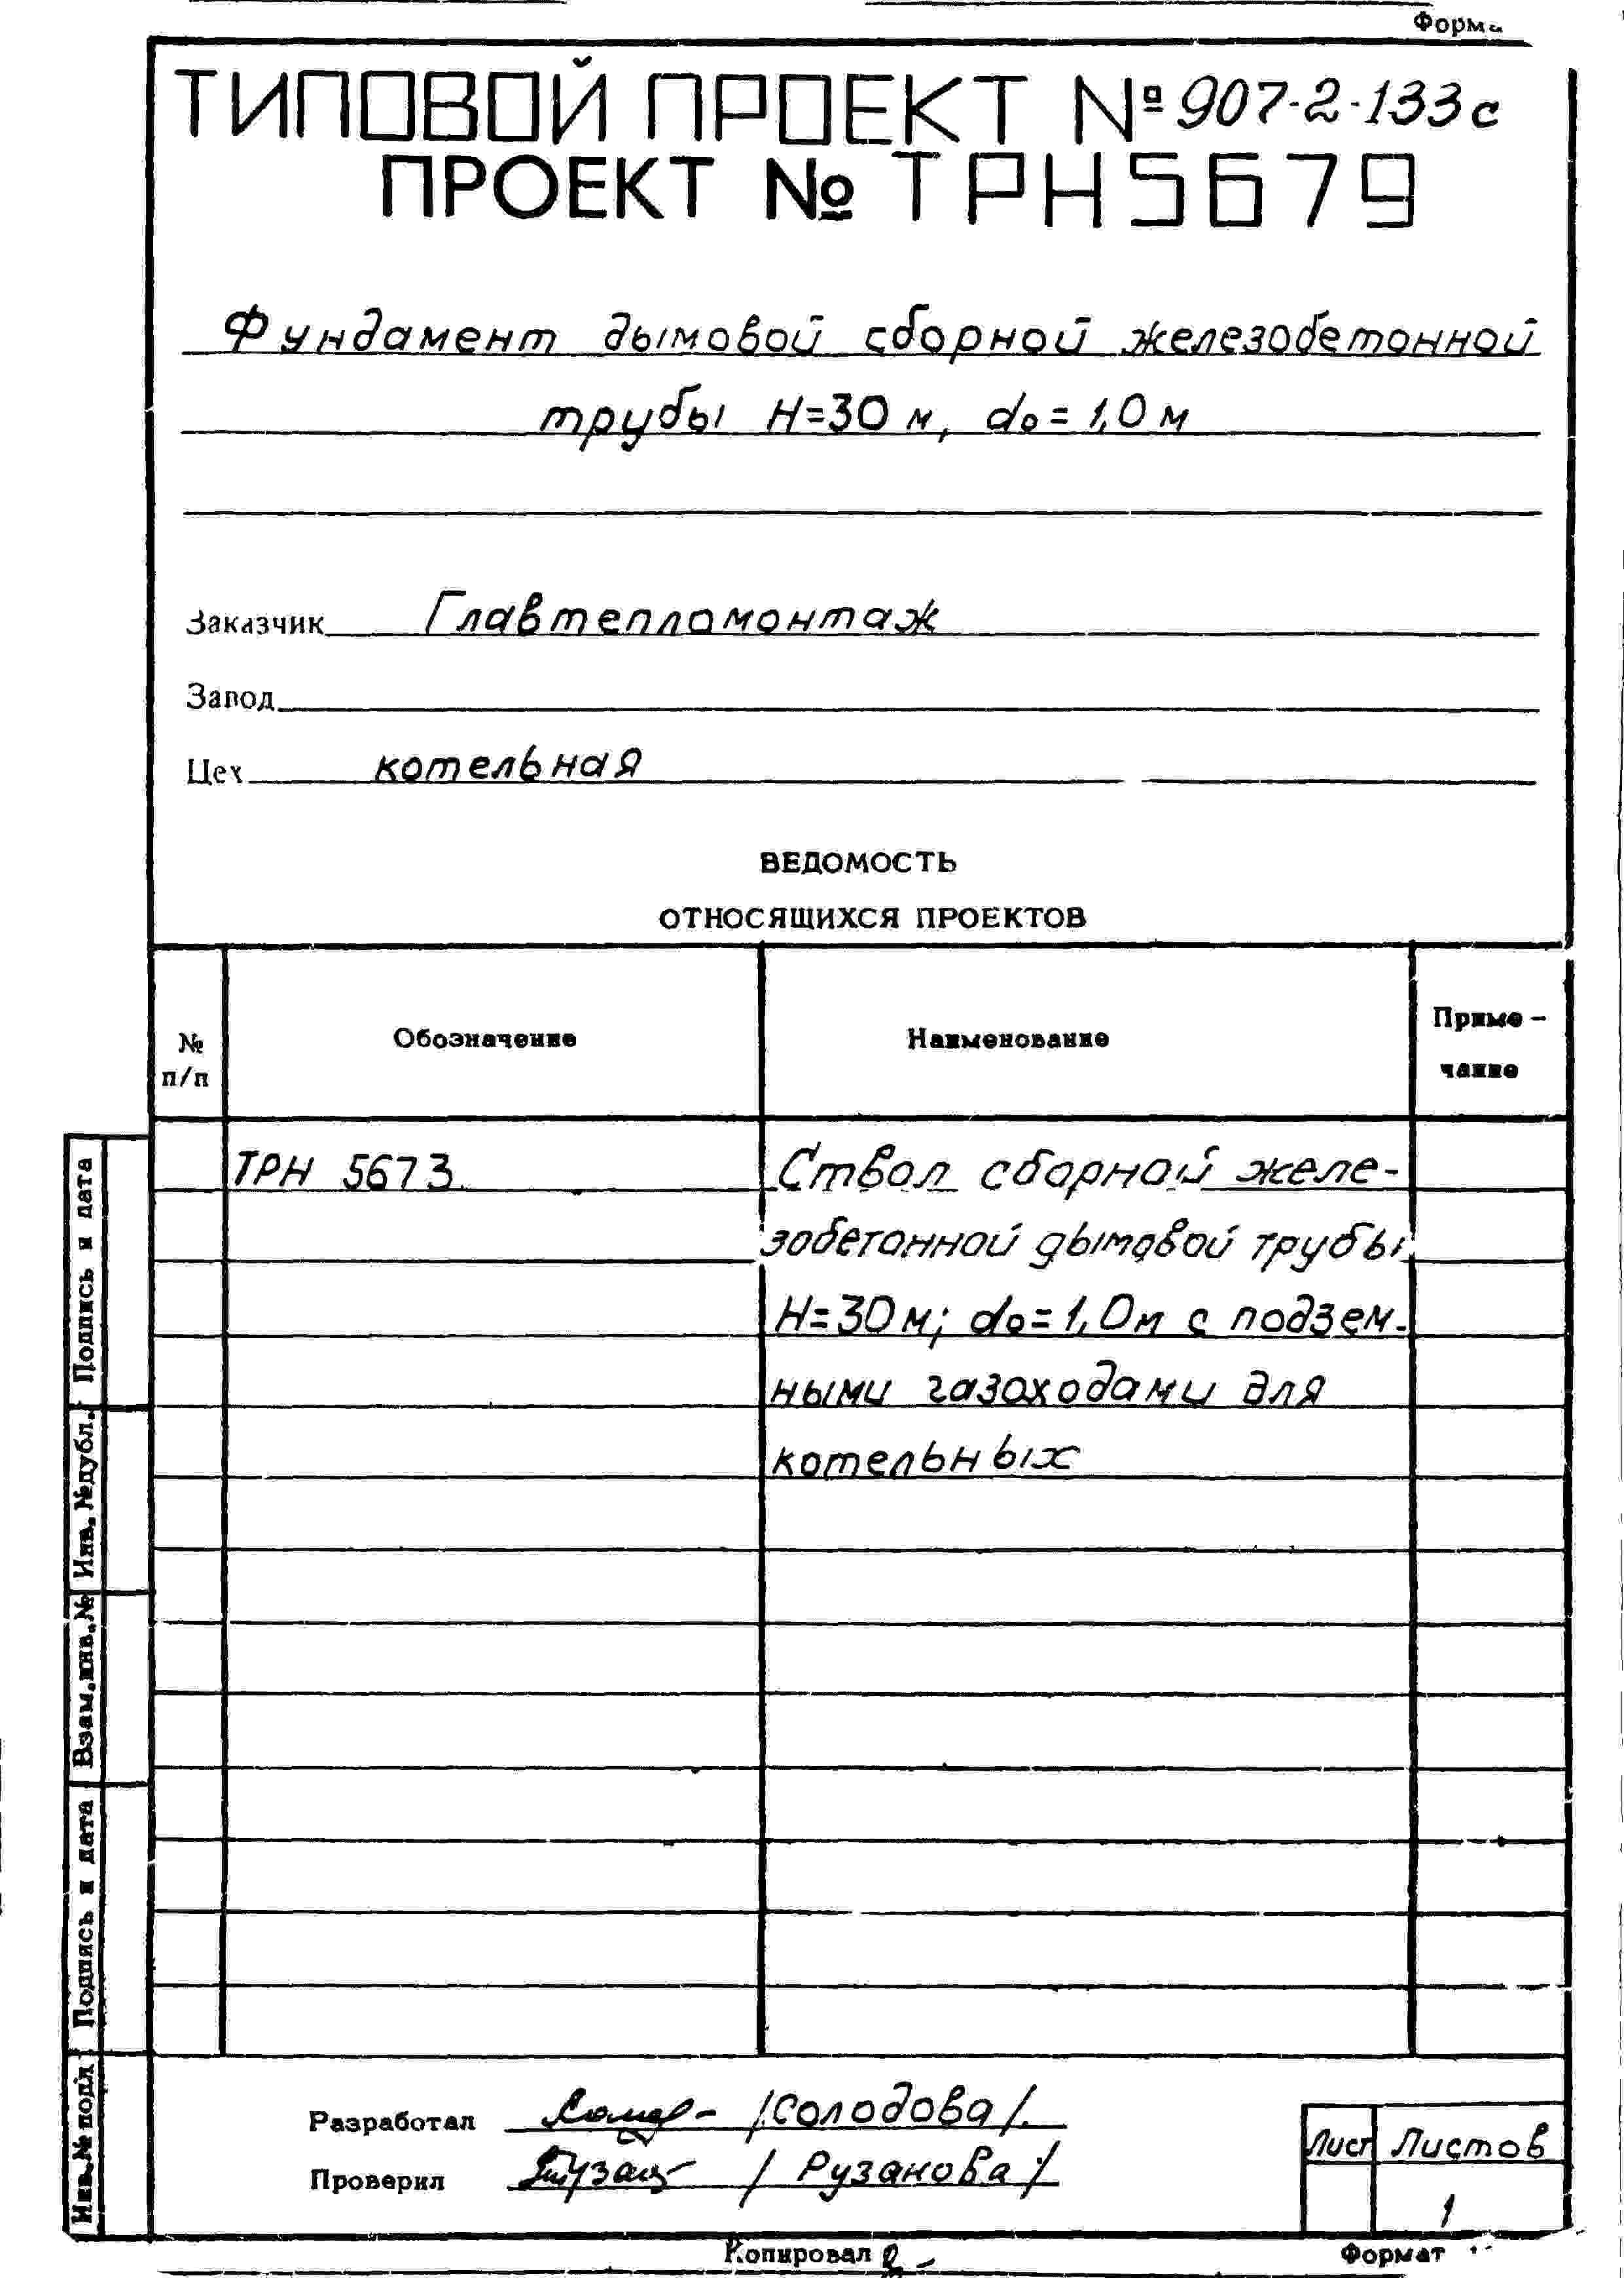 Форма
ТИПОВОЙ ПРОЕКТ № 907-2-133с
ПРОЕКТ № ТРН5679
Фундамент дымовой сборной железобетонной
трубы Н=30 м, dо = 1,0 м
Заказчик Главтепломонтаж
Завод
Цех котельная
ВЕДОМОСТЬ
ОТНОСЯЩИХСЯ ПРОЕКТОВ
№ п/п
Обозначение
Наименование
Приме-
чание
ТРН 5673
Ствол сборной желе-
зобетонной дымовой трубы
Н=30м; dо=1,0м с подзем-
ными газоходами для
котельных
Подпись и дата
Инв.№дубл.
Взам.инв.№
Подпись и дата
Инв.№ подл
Разработал /Солодова/.
Проверил /Рузанова/
Лист Листов
1
Копировал
Формат